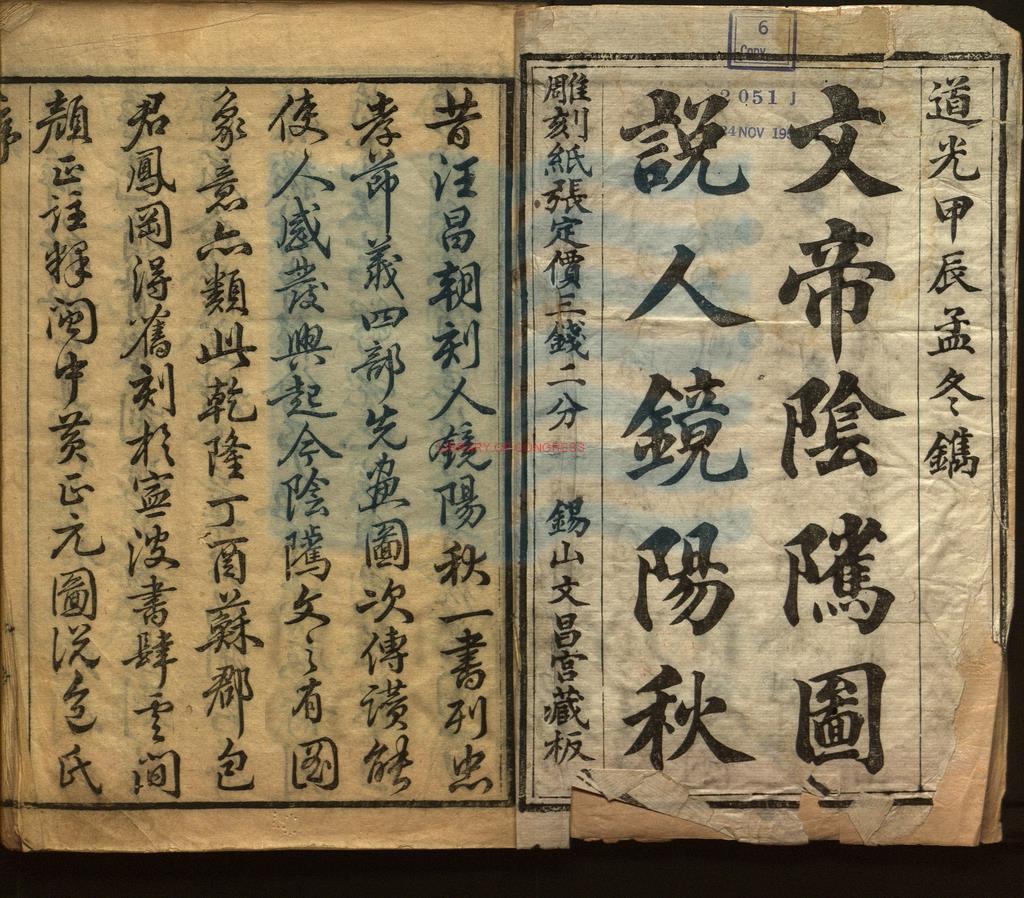 道光甲辰孟冬鐫
文帝陰隲圖
說人鏡陽秋
雕刻紙張定價三錢二分 錫山文昌宮藏板
6
Copy
2051 J
24 NOV 19
LIBRARY OF CONGRESS
昔汪昌朝刻人鏡陽秋一書列忠
孝節義四部先畫圖次傳讚能
使人感發興起今陰隲文之有圖
象意亦類此乾隆丁酉蘇郡包
君鳳岡得舊刻於寧波書肆雲間
顏正註釋閩中黃正元圖說包氏